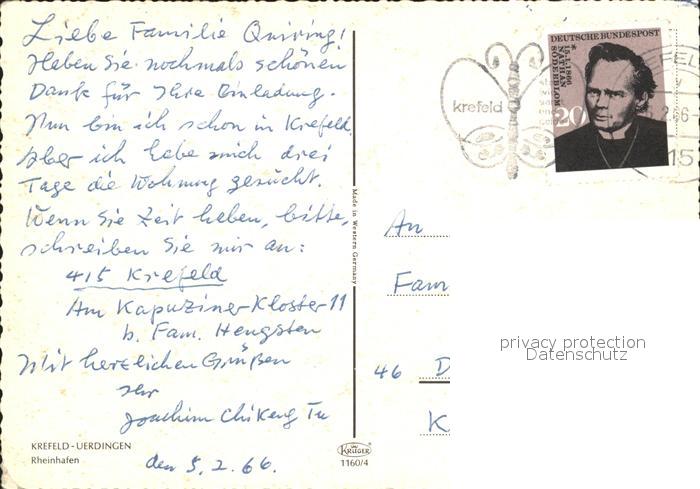 Liebe Familie Quiring!
Haben Sie nochmals schönen
Dank für Ihre Einladung.
Nun bin ich schon in Krefeld.
Aber ich habe mich drei
Tage die Wohnung gesucht.
Wenn Sie Zeit haben, bitte,
schreiben Sie mir an:
415 Krefeld
Am Kapuziner-Kloster 11
b. Fam. Hengsten
Mit herzlichen Grüßen
Ihr
Joachim Chikeng Tu
den 5. 2. 66.
KREFELD-UERDINGEN
Rheinhafen
Made in Western Germany
KRÜGER
1160/4
krefeld
DEUTSCHE BUNDESPOST
* 15.1.1866
NATHAN
SÖDERBLOM
20
An
Fam
46 D
K
privacy protection
Datenschutz